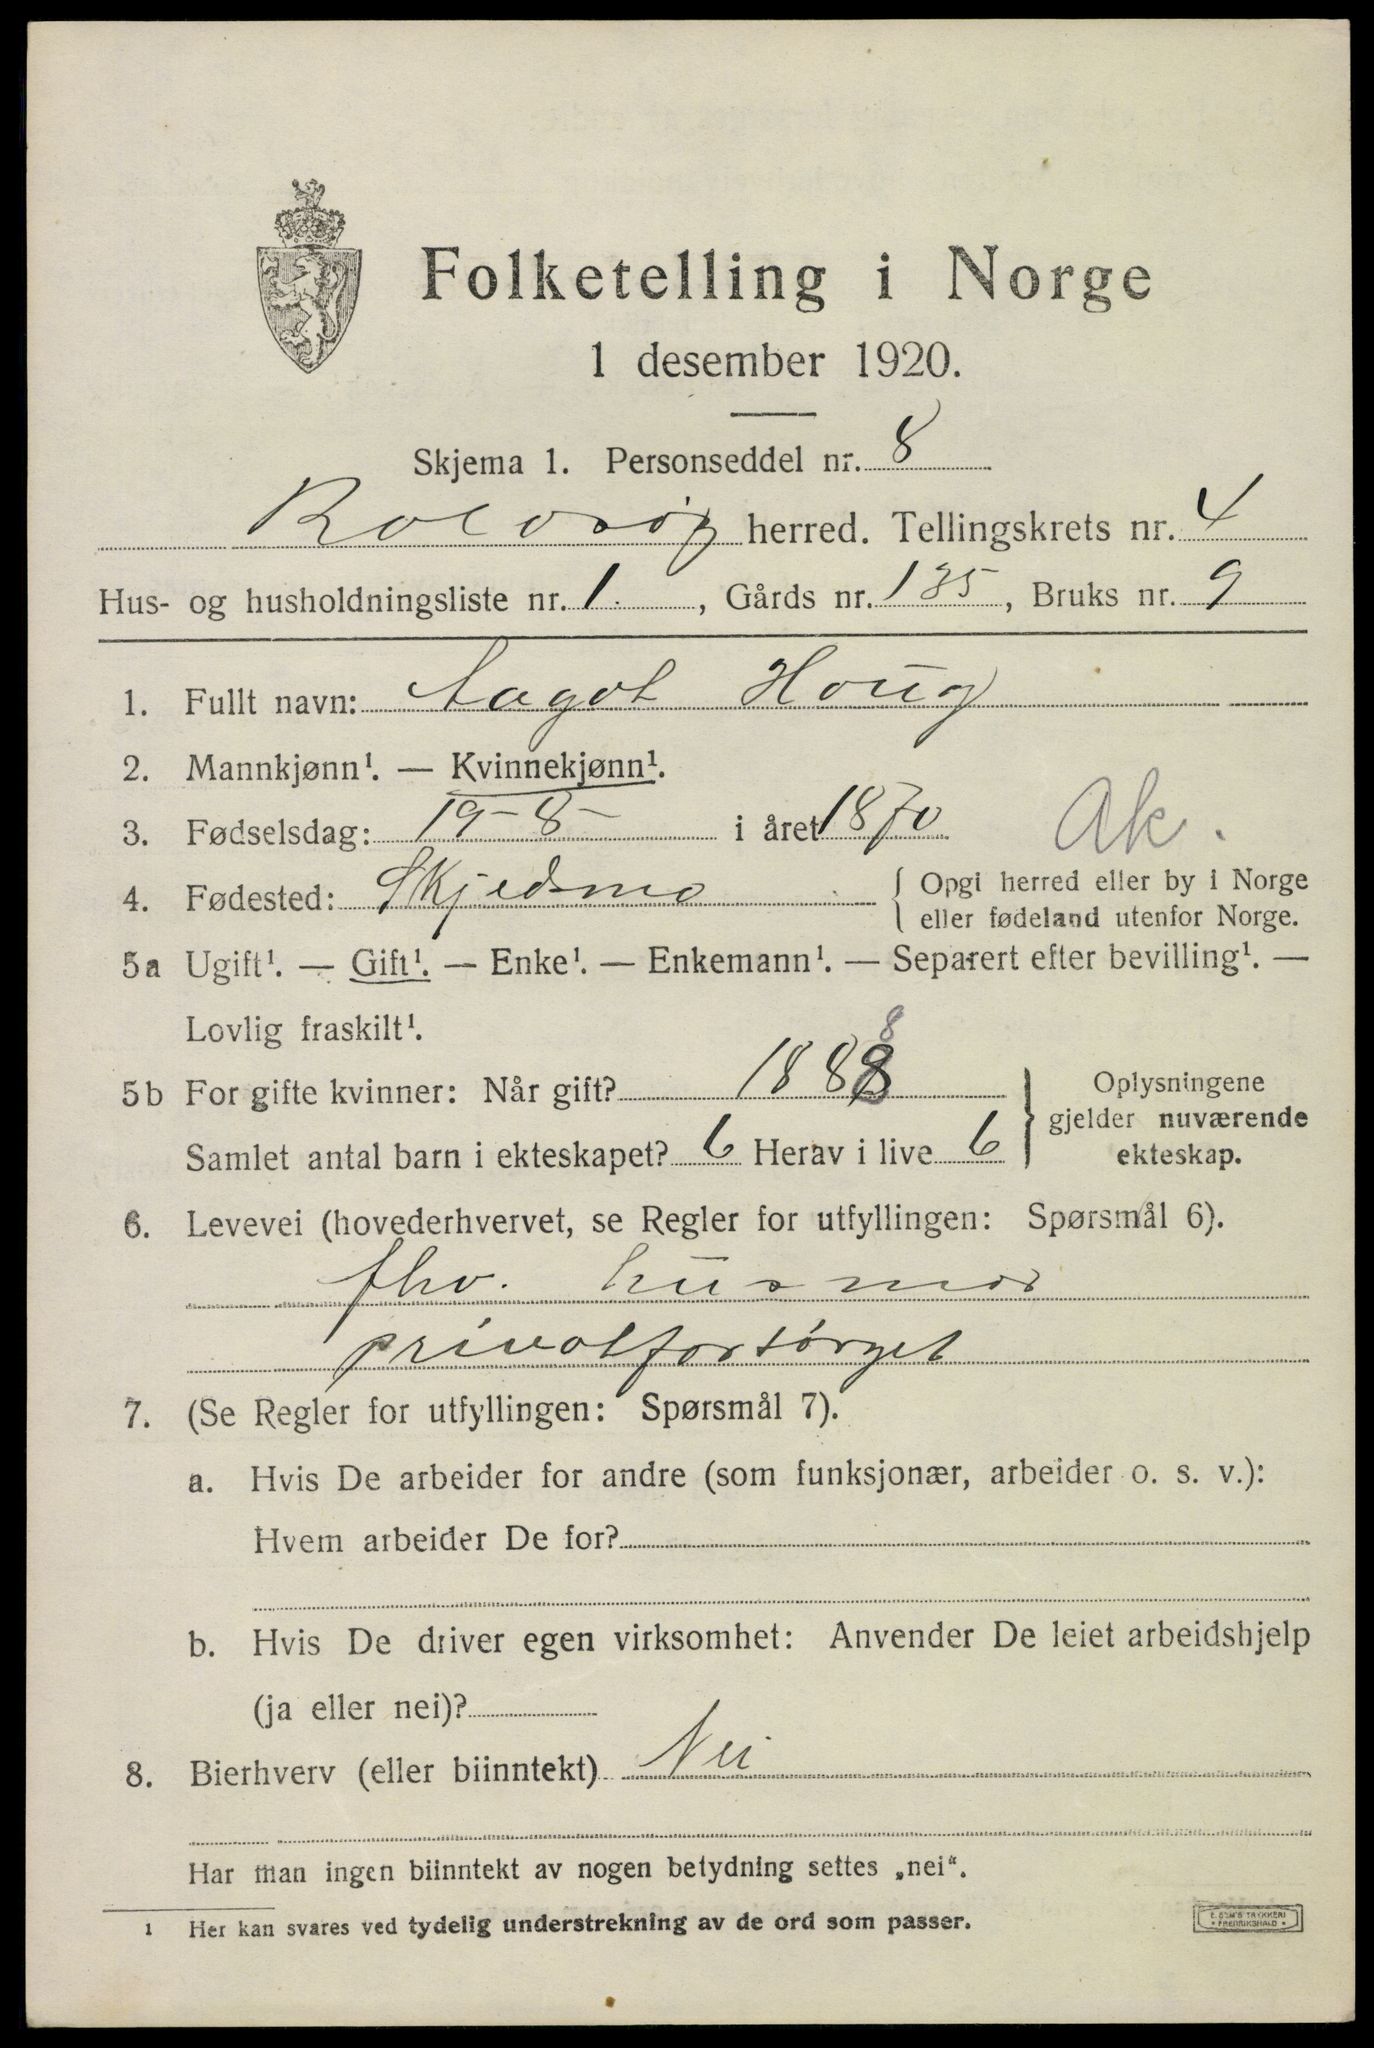 Folketelling i Norge
1 desember 1920.
Skjema 1. Personseddel nr. 8
Rolvsøy herred. Tellingskrets nr. 4
Hus- og husholdningsliste nr. 1. , Gårds nr. 135 , Bruks nr. 9
1. Fullt navn: Aagot Houg
2. Mannkjønn¹. — Kvinnekjønn¹.
3. Fødselsdag: 19-8- i året 1870
Ak.
4. Fødested: Skjedsmo { Opgi herred eller by i Norge
eller fødeland utenfor Norge.
5a Ugift¹. — Gift¹. — Enke¹. — Enkemann¹. — Separert efter bevilling¹. —
Lovlig fraskilt¹.
8
5b For gifte kvinner: Når gift? 1888 } Oplysningene
gjelder nuværende
Samlet antal barn i ekteskapet? 6 Herav i live 6 ekteskap.
6. Levevei (hovederhvervet, se Regler for utfyllingen: Spørsmål 6).
fhv. husmor
privatforsørget
7. (Se Regler for utfyllingen: Spørsmål 7).
a. Hvis De arbeider for andre (som funksjonær, arbeider o. s. v.):
Hvem arbeider De for?
b. Hvis De driver egen virksomhet: Anvender De leiet arbeidshjelp
(ja eller nei)?
8. Bierhverv (eller biinntekt) Nei
Har man ingen biinntekt av nogen betydning settes „nei“.
1 Her kan svares ved tydelig understrekning av de ord som passer.
E. SEM'S TRYKKERI
• FREDRIKSHALD •